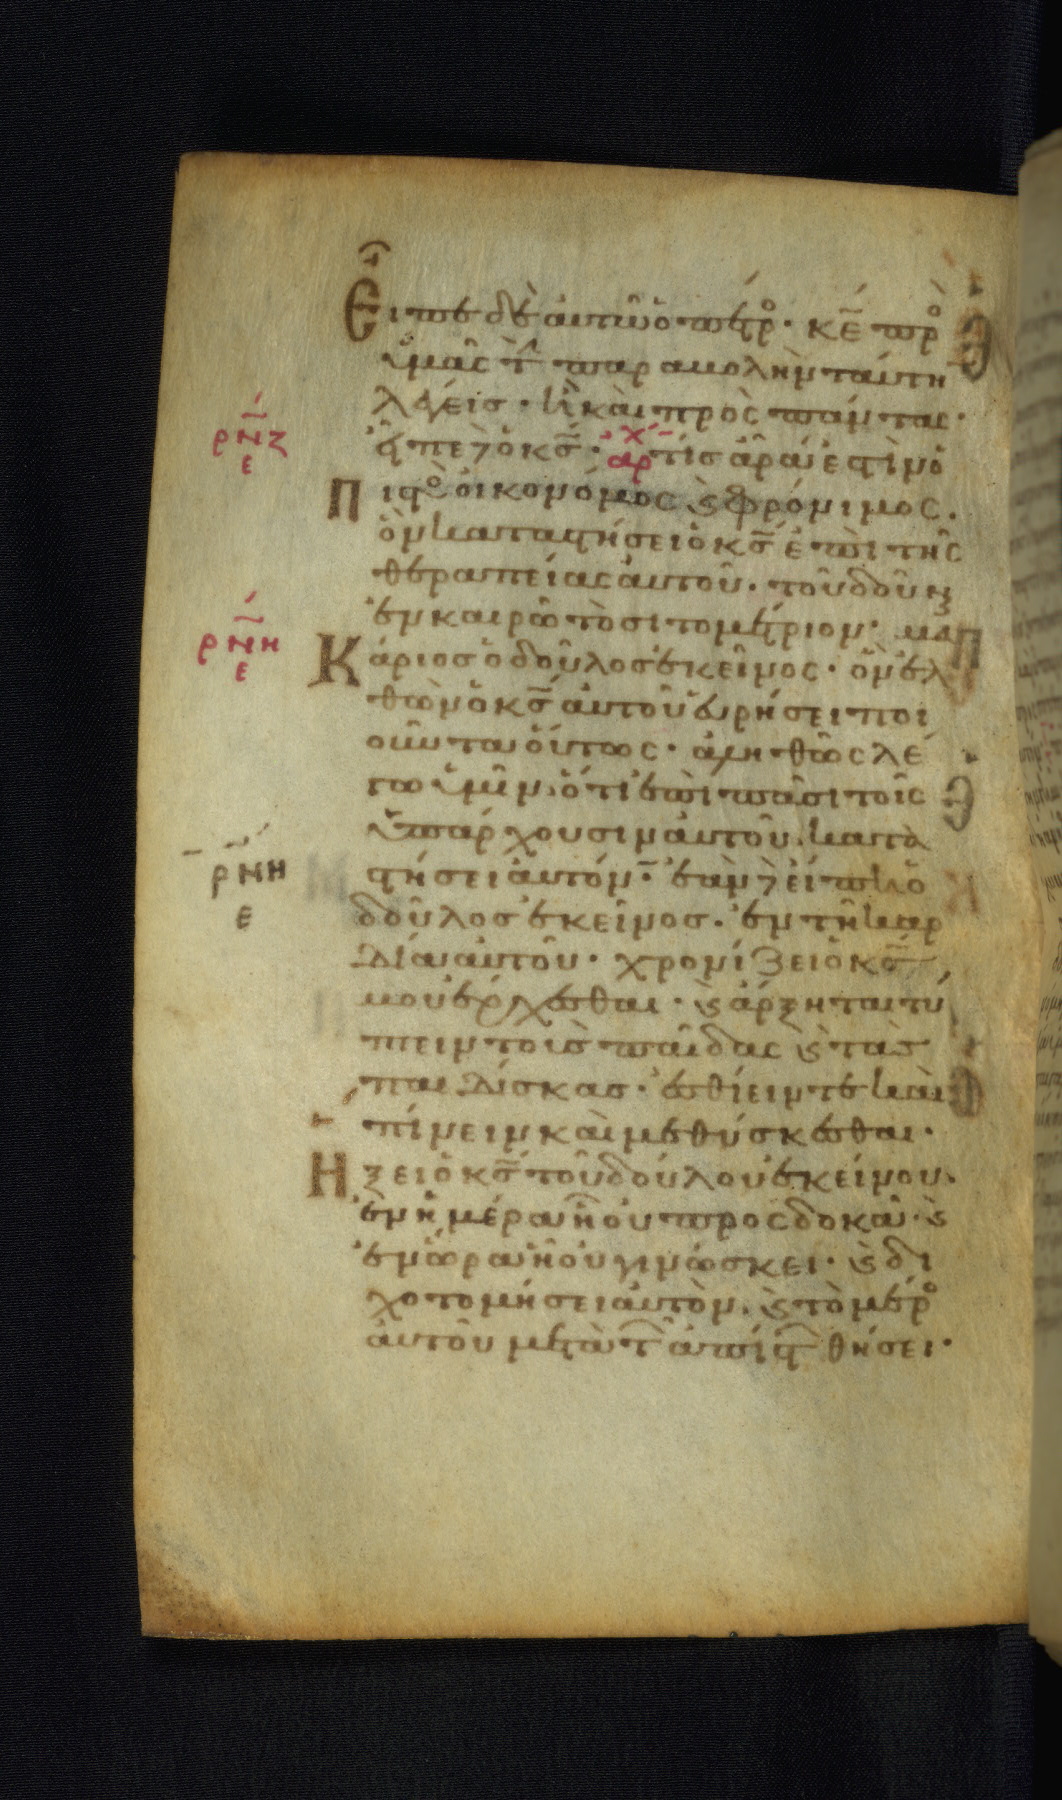 Εἶπε δὲ αὐτῶ ὁ πέτρ̊· κε̅ πρ̊
ἡμᾶς τ̑ παραβολὴν ταύτη
λέγεις· ἢ καὶ πρὸς πάντας·
ρ̅ν̅ζ ε
εἶπε δὲ ὁ κς̅· ἀρ χ τίς ἄρα ἐστὶν ὁ
Πιστὸς οἰκονόμος ϗ φρόνιμος.
ὃν καταστήσει ὁ κς̅ ἐπὶ τῆς
θεραπείας αὐτοῦ. τοῦ δοῦν
ἐν καιρῶ τὸ σιτομέτριον· μα
ρ̅ν̅η ε
Κάριος ὁ δοῦλος ἐκεῖνος· ὃν ἐλ
θὼν ὁ κς̅ αὐτοῦ εὑρήσει ποι
οῦντα οὕτως· ἀληθῶς λέ
γω ὑμῖν. ὅτι ἐπὶ πᾶσι τοῖς
ὑπάρχουσιν αὐτοῦ. κατα
ρ̅ν̅η ε
στήσει αὐτόν· ἐὰν δὲ εἴπη ὁ
δοῦλος ἐκεῖνος. ἐν τῆ καρ
δία αὐτοῦ· χρονίζει ὁ κς̅
μου ἔρχεσθαι· ϗ ἄρξηται τύ
πτειν τοὺς παῖδας ϗ τὰς
παιδίσκας· ἐσθίειν τε καὶ
πίνειν καὶ μεθύσκεσθαι·
Ηξει ὁ κς̅ τοῦ δούλου ἐκείνου.
ἐν ἡμέρα ἧ οὐ προσδοκᾶ· ϗ
ἐν ὥρα ἧ οὐ γινώσκει· ϗ δι
χοτομήσει αὐτὸν. ϗ τὸ μέρ̊
αὐτοῦ μετὰ τ̑ ἀπίστ̑ θήσει·